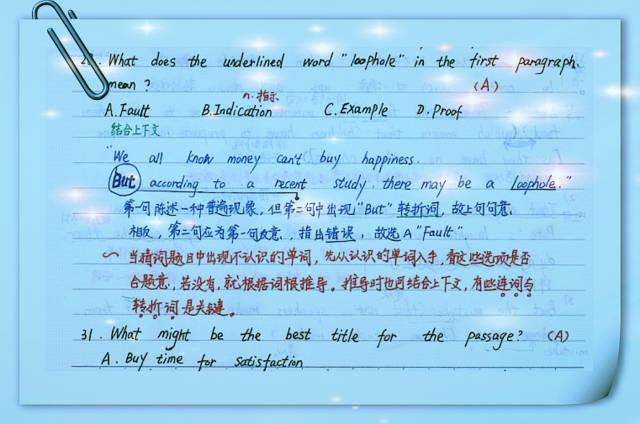 . What does the underlined word "loophole" in the first paragraph.
mean? (A)
n.指示
A. Fault B. Indication C. Example D. Proof
结合上下文
"We all know money can't buy happiness.
But according to a recent study, there may be a loophole."
第一句陈述一种普遍现象，但第二句中出现"But"转折词，故上句句意
相反，第二句应为第一句反意，指出错误，故选A"Fault"
当猜词题目中出现不认识的单词，先从认识的单词入手，看这些选项是否
合题意，若没有，就根据词根推导。推导时也可结合上下文，有些连词与
转折词是关键。
31. What might be the best title for the passage? (A)
A. Buy time for satisfaction